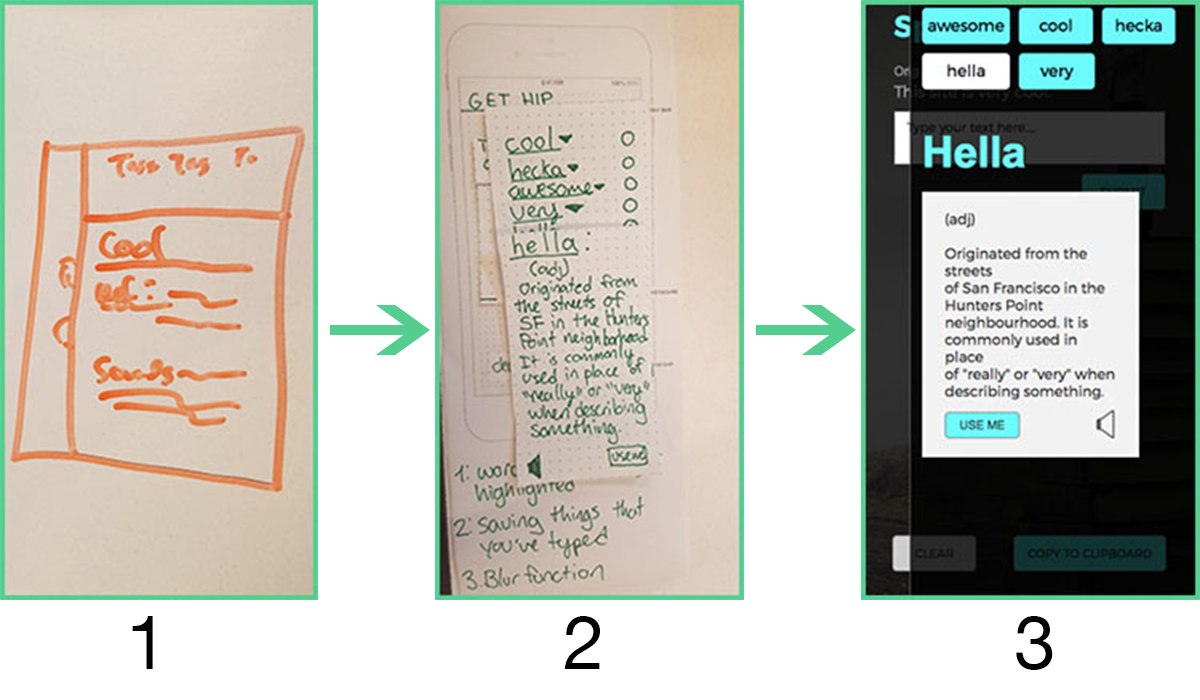 Cool
def:
GET HIP
cool
hecka
awesome
very
hella:
(adj)
Originated from
the streets of
SF in the Hunters
Point neighborhood
It is commonly
used in place of
"really" or "very"
when describing
something.
use me
1: word
highlighted
2: Saving things that
you've typed
3. Blur function
awesome cool hecka
hella very
This site is very cool.
Type your text here...
Hella
(adj)
Originated from the
streets
of San Francisco in the
Hunters Point
neighbourhood. It is
commonly used in
place
of "really" or "very" when
describing something.
USE ME
SUBMIT
CLEAR COPY TO CLIPBOARD
1 2 3